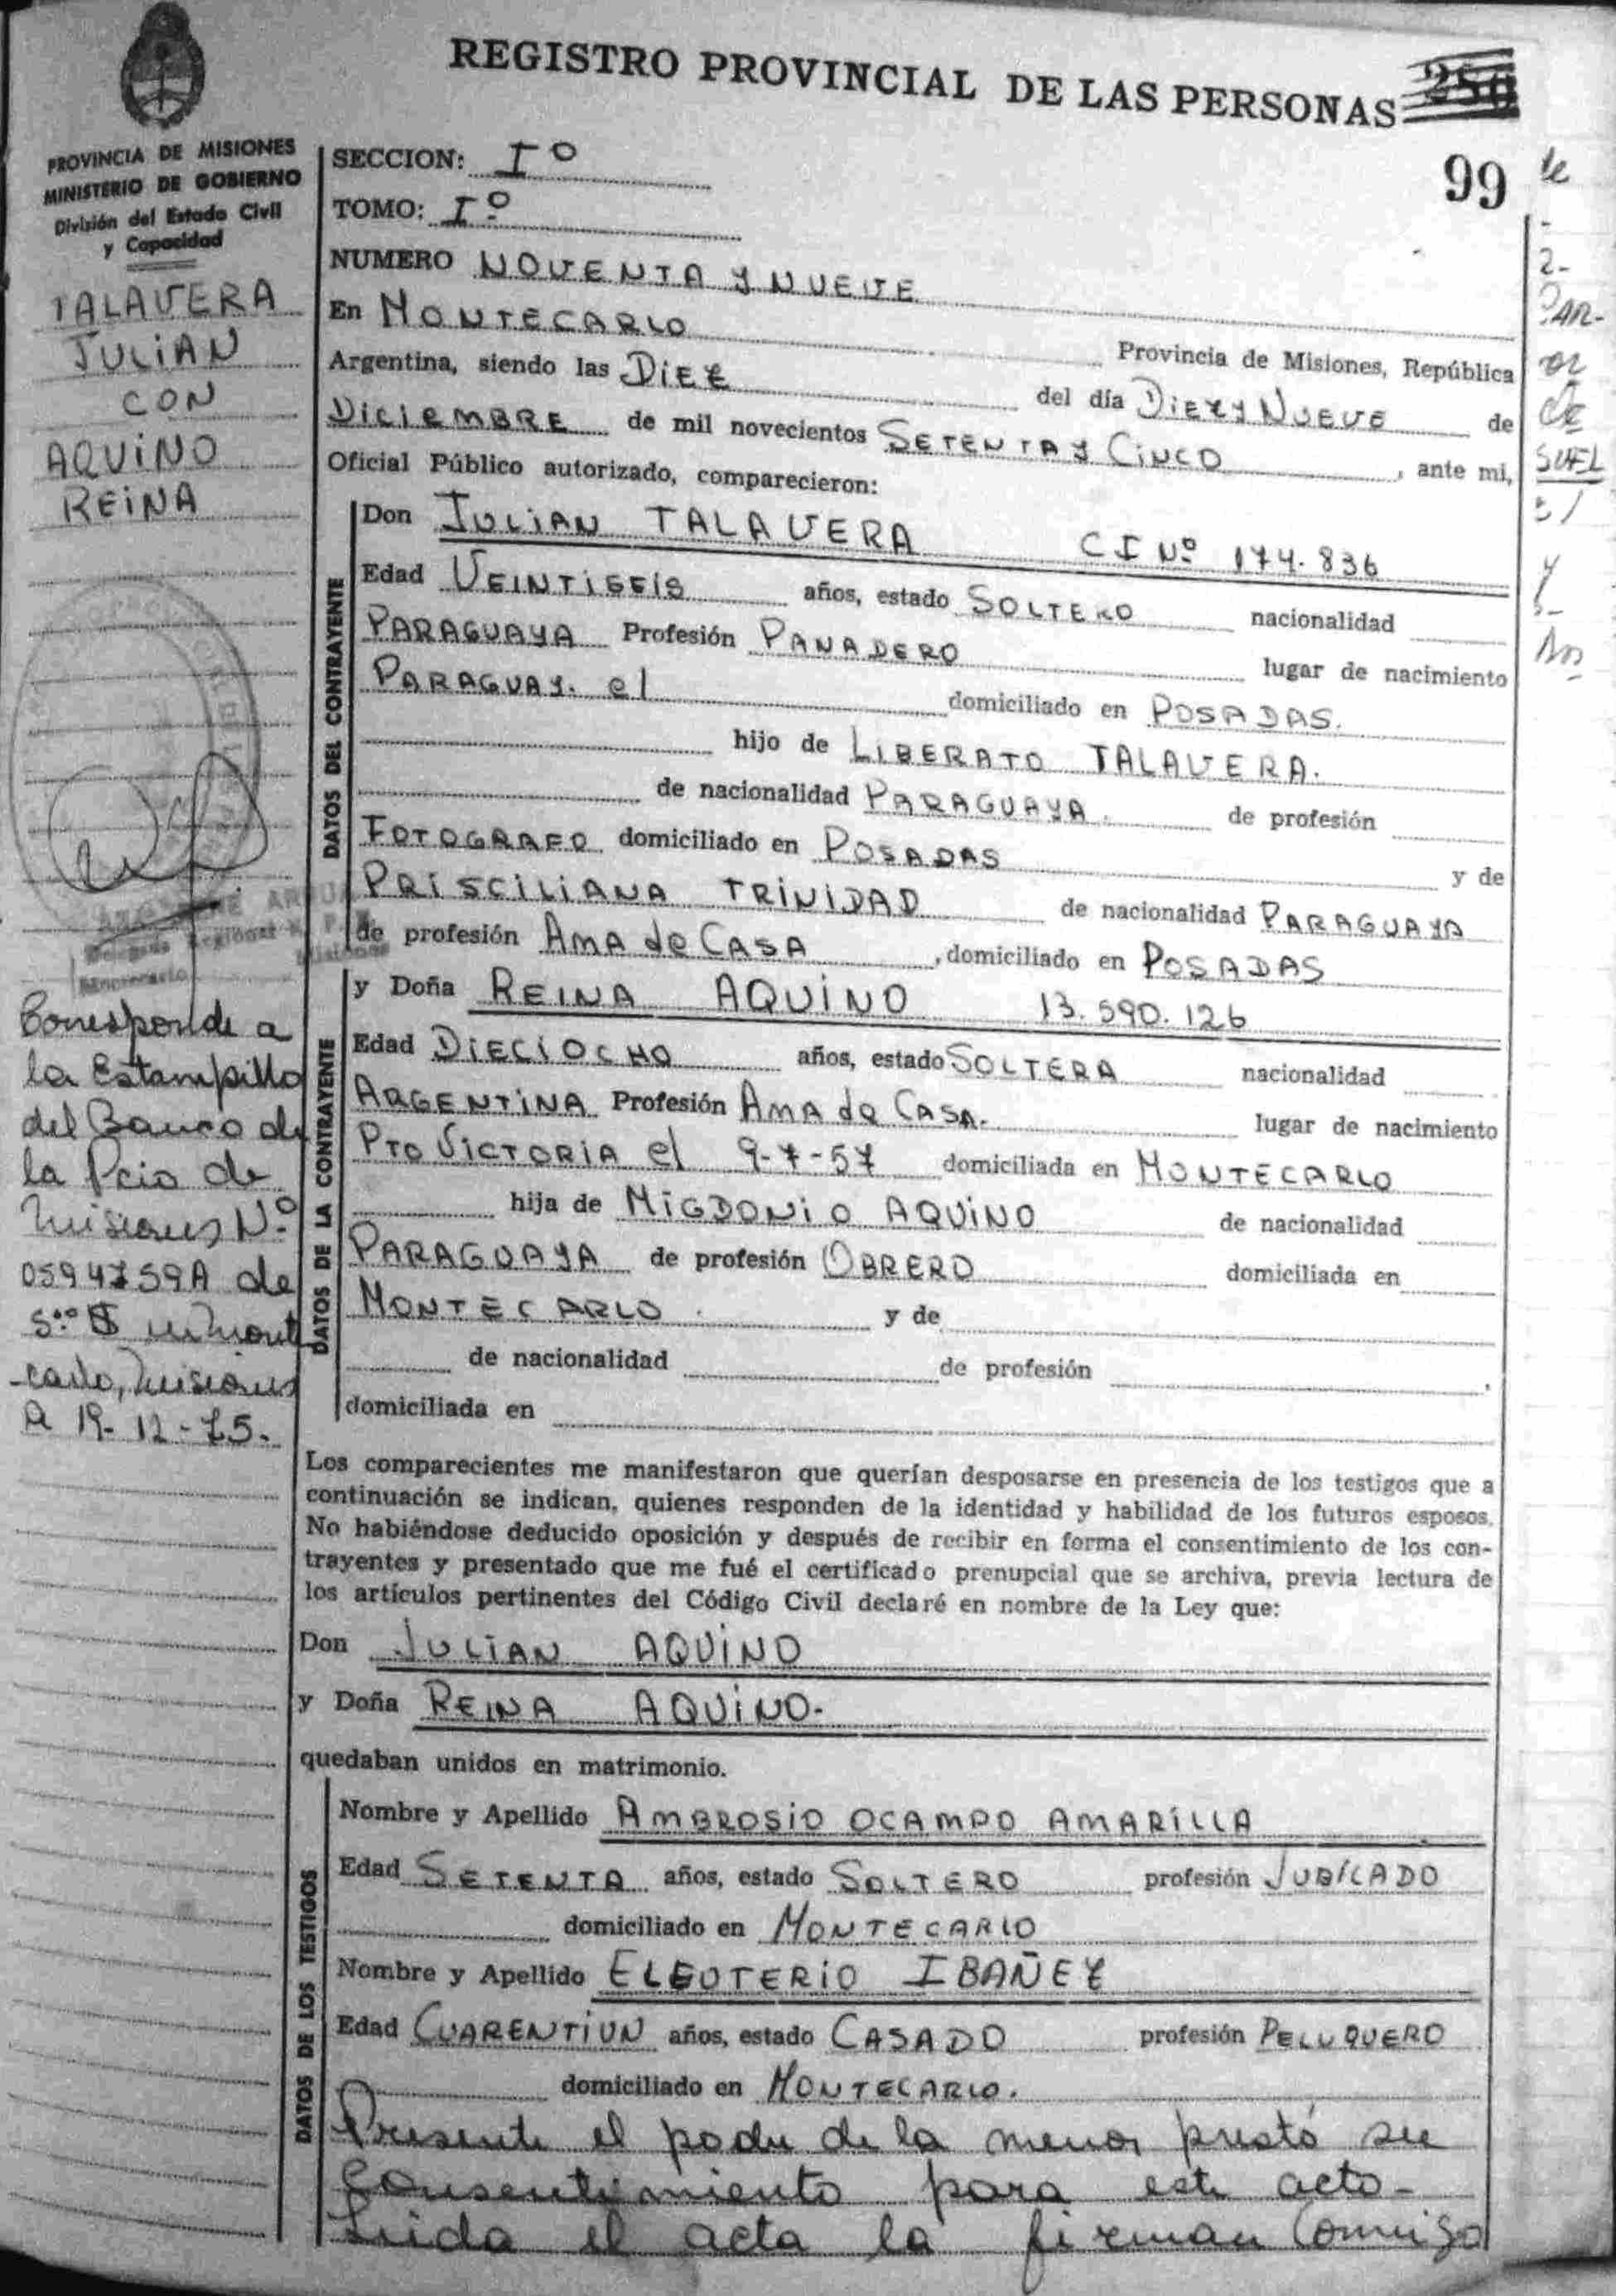 REGISTRO PROVINCIAL DE LAS PERSONAS 250
99
PROVINCIA DE MISIONES
MINISTERIO DE GOBIERNO
División del Estado Civil
y Capacidad
TALAVERA
JULIAN
CON
AQUINO
REINA
SECCION: Iº
TOMO: Iº
NUMERO NOVENTA Y NUEVE
En MONTECARLO Provincia de Misiones, República
Argentina, siendo las DIEZ del día DIEZ Y NUEVE de
DICIEMBRE de mil novecientos SETENTA Y CINCO, ante mi,
Oficial Público autorizado, comparecieron:
DATOS DEL CONTRAYENTE
Don JULIAN TALAVERA CI Nº 174.836
Edad VEINTISEIS años, estado SOLTERO nacionalidad
PARAGUAYA Profesión PANADERO lugar de nacimiento
PARAGUAY. el domiciliado en POSADAS.
hijo de LIBERATO TALAVERA.
de nacionalidad PARAGUAYA. de profesión
FOTOGRAFO domiciliado en POSADAS y de
PRISCILIANA TRINIDAD de nacionalidad PARAGUAYA
de profesión AMA de CASA, domiciliado en POSADAS
DATOS DE LA CONTRAYENTE
y Doña REINA AQUINO 13.590.126
Edad DIECIOCHO años, estado SOLTERA nacionalidad
ARGENTINA Profesión AMA de CASA. lugar de nacimiento
PTO VICTORIA el 9-7-57 domiciliada en MONTECARLO
hija de MIGDONIO AQUINO de nacionalidad
PARAGUAYA de profesión OBRERO domiciliada en
MONTECARLO. y de
de nacionalidad de profesión
domiciliada en
Corresponde a
la Estampilla
del Banco de
la Pcia de
Misiones Nº
0594759A de
5.ºº $ en Monte
-carlo, Misiones
A 19-12-75.
Los comparecientes me manifestaron que querían desposarse en presencia de los testigos que a
continuación se indican, quienes responden de la identidad y habilidad de los futuros esposos.
No habiéndose deducido oposición y después de recibir en forma el consentimiento de los con-
trayentes y presentado que me fué el certificado prenupcial que se archiva, previa lectura de
los artículos pertinentes del Código Civil declaré en nombre de la Ley que:
Don JULIAN AQUINO
y Doña REINA AQUINO.
quedaban unidos en matrimonio.
DATOS DE LOS TESTIGOS
Nombre y Apellido AMBROSIO OCAMPO AMARILLA
Edad SETENTA años, estado SOLTERO profesión JUBILADO
domiciliado en MONTECARLO
Nombre y Apellido ELEUTERIO IBAÑEZ
Edad CUARENTIUN años, estado CASADO profesión PELUQUERO
domiciliado en MONTECARLO.
Presente el padre de la menor prestó su
Consentimiento para este acto-
Leida el acta la firman Conmigo